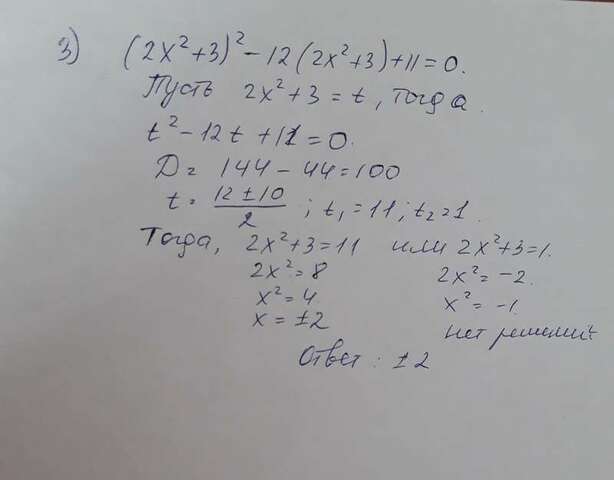 3) (2x²+3)² - 12(2x²+3)+11=0.
Пусть 2x²+3 = t, тогда.
t² - 12t + 11 = 0.
D = 144 - 44 = 100
t = (12 ± 10)/2 ; t₁ = 11 ; t₂ = 1.
Тогда, 2x²+3=11 или 2x²+3=1.
2x² = 8 2x² = -2.
x² = 4 x² = -1
x = ±2 нет решений.
Ответ : ±2